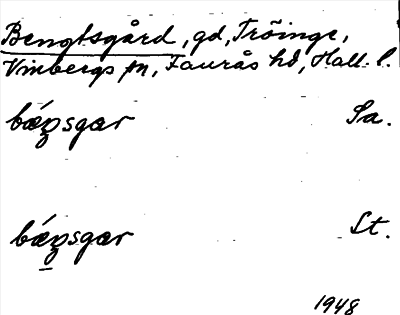 Bengtsgård, gd, Tröinge,
Vinbergs sn, Faurås hd, Hall. l.
bǽꞑsgar Sa.
bǽꞑsgar St.
1948